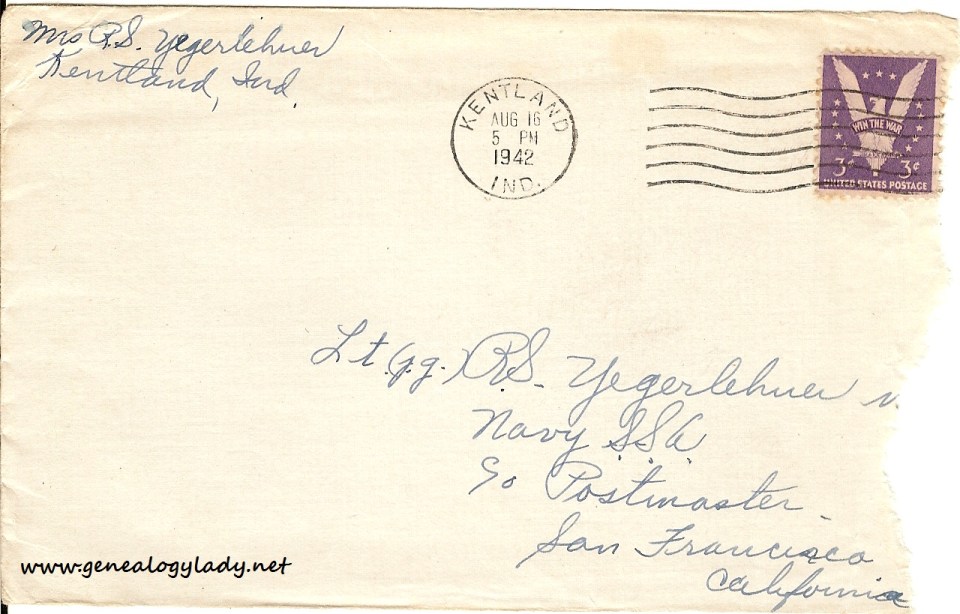 Mrs R.S. Yegerlehner
Kentland, Ind.
KENTLAND
AUG 16
5 PM
1942
IND.
WIN THE WAR
3¢ 3¢
UNITED STATES POSTAGE
Lt. (j.g.) R.S. Yegerlehner
Navy
c/o Postmaster
San Francisco
California
www.genealogylady.net